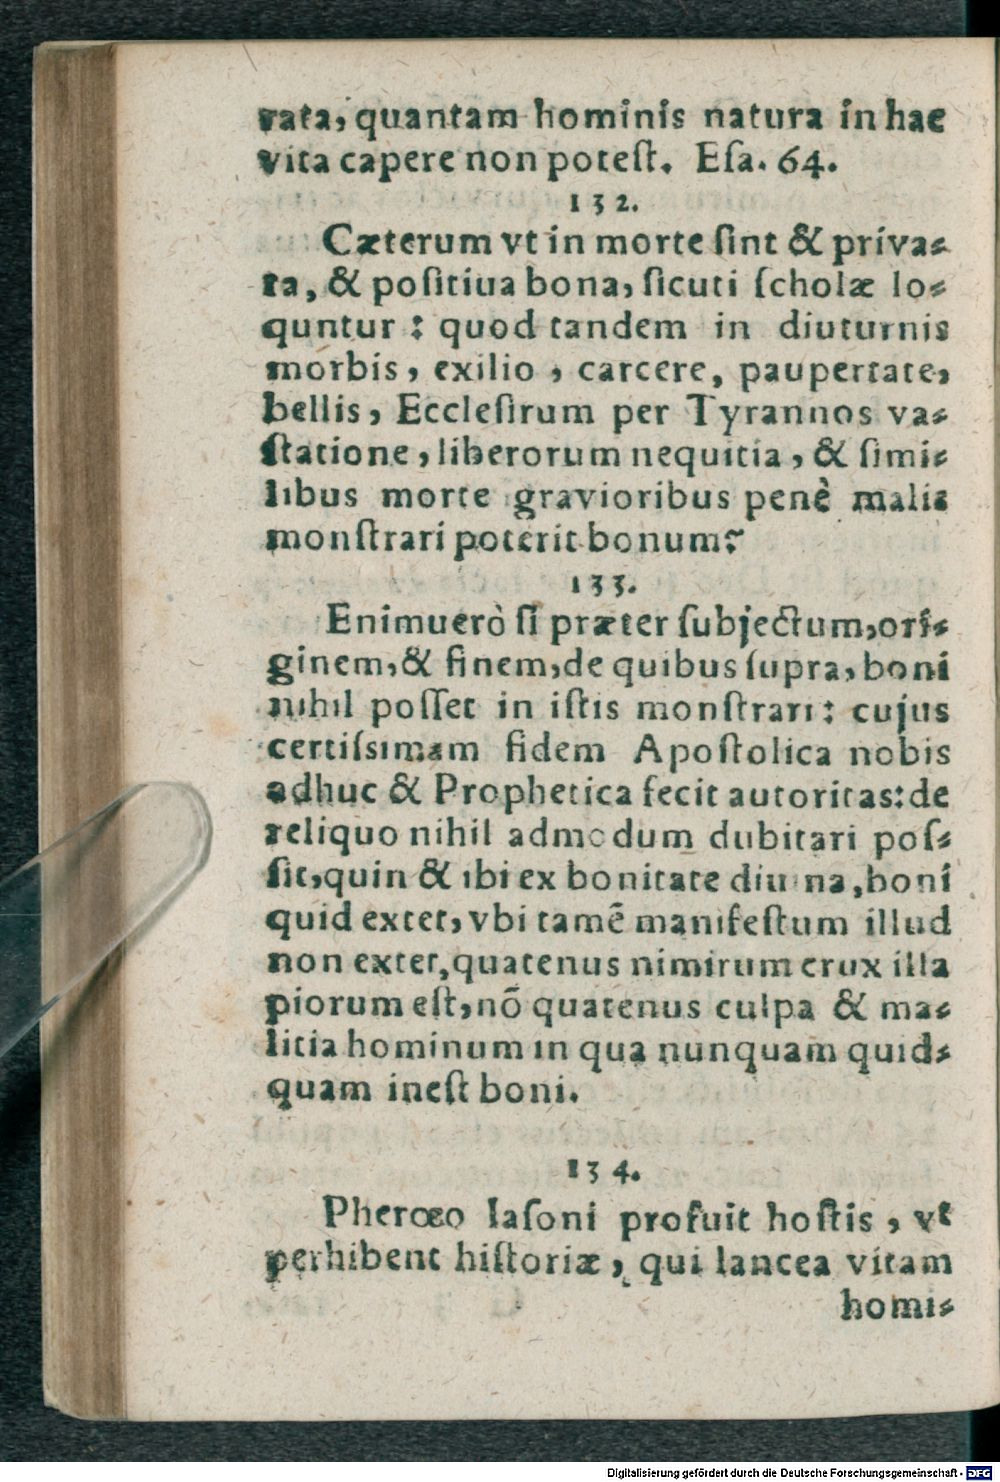 rata, quantam hominis natura in hac
vita capere non poteſt. Eſa. 64.
132.
Cæterum vt in morte ſint & priva-
ta, & poſitiua bona, ſicuti ſcholæ lo-
quntur: quod tandem in diuturnis
morbis, exilio, carcere, paupertate,
bellis, Eccleſirum per Tyrannos va-
ſtatione, liberorum nequitia, & ſimi-
libus morte gravioribus penè malis
monſtrari poterit bonum?
133.
Enimuerò ſi præter ſubjectum, ori-
ginem, & finem, de quibus ſupra, boni
nihil poſſet in iſtis monſtrari: cujus
certiſsimam fidem Apoſtolica nobis
adhuc & Prophetica fecit autoritas: de
reliquo nihil admodum dubitari poſ-
ſit, quin & ibi ex bonitate diuina, boni
quid extet, vbi tamē manifeſtum illud
non extet, quatenus nimirum crux illa
piorum eſt, nō quatenus culpa & ma-
litia hominum in qua nunquam quid-
quam ineſt boni.
134.
Pherœo Iaſoni profuit hoſtis, vt
perhibent hiſtoriæ, qui lancea vitam
homi-
Digitalisierung gefördert durch die Deutsche Forschungsgemeinschaft - DFG